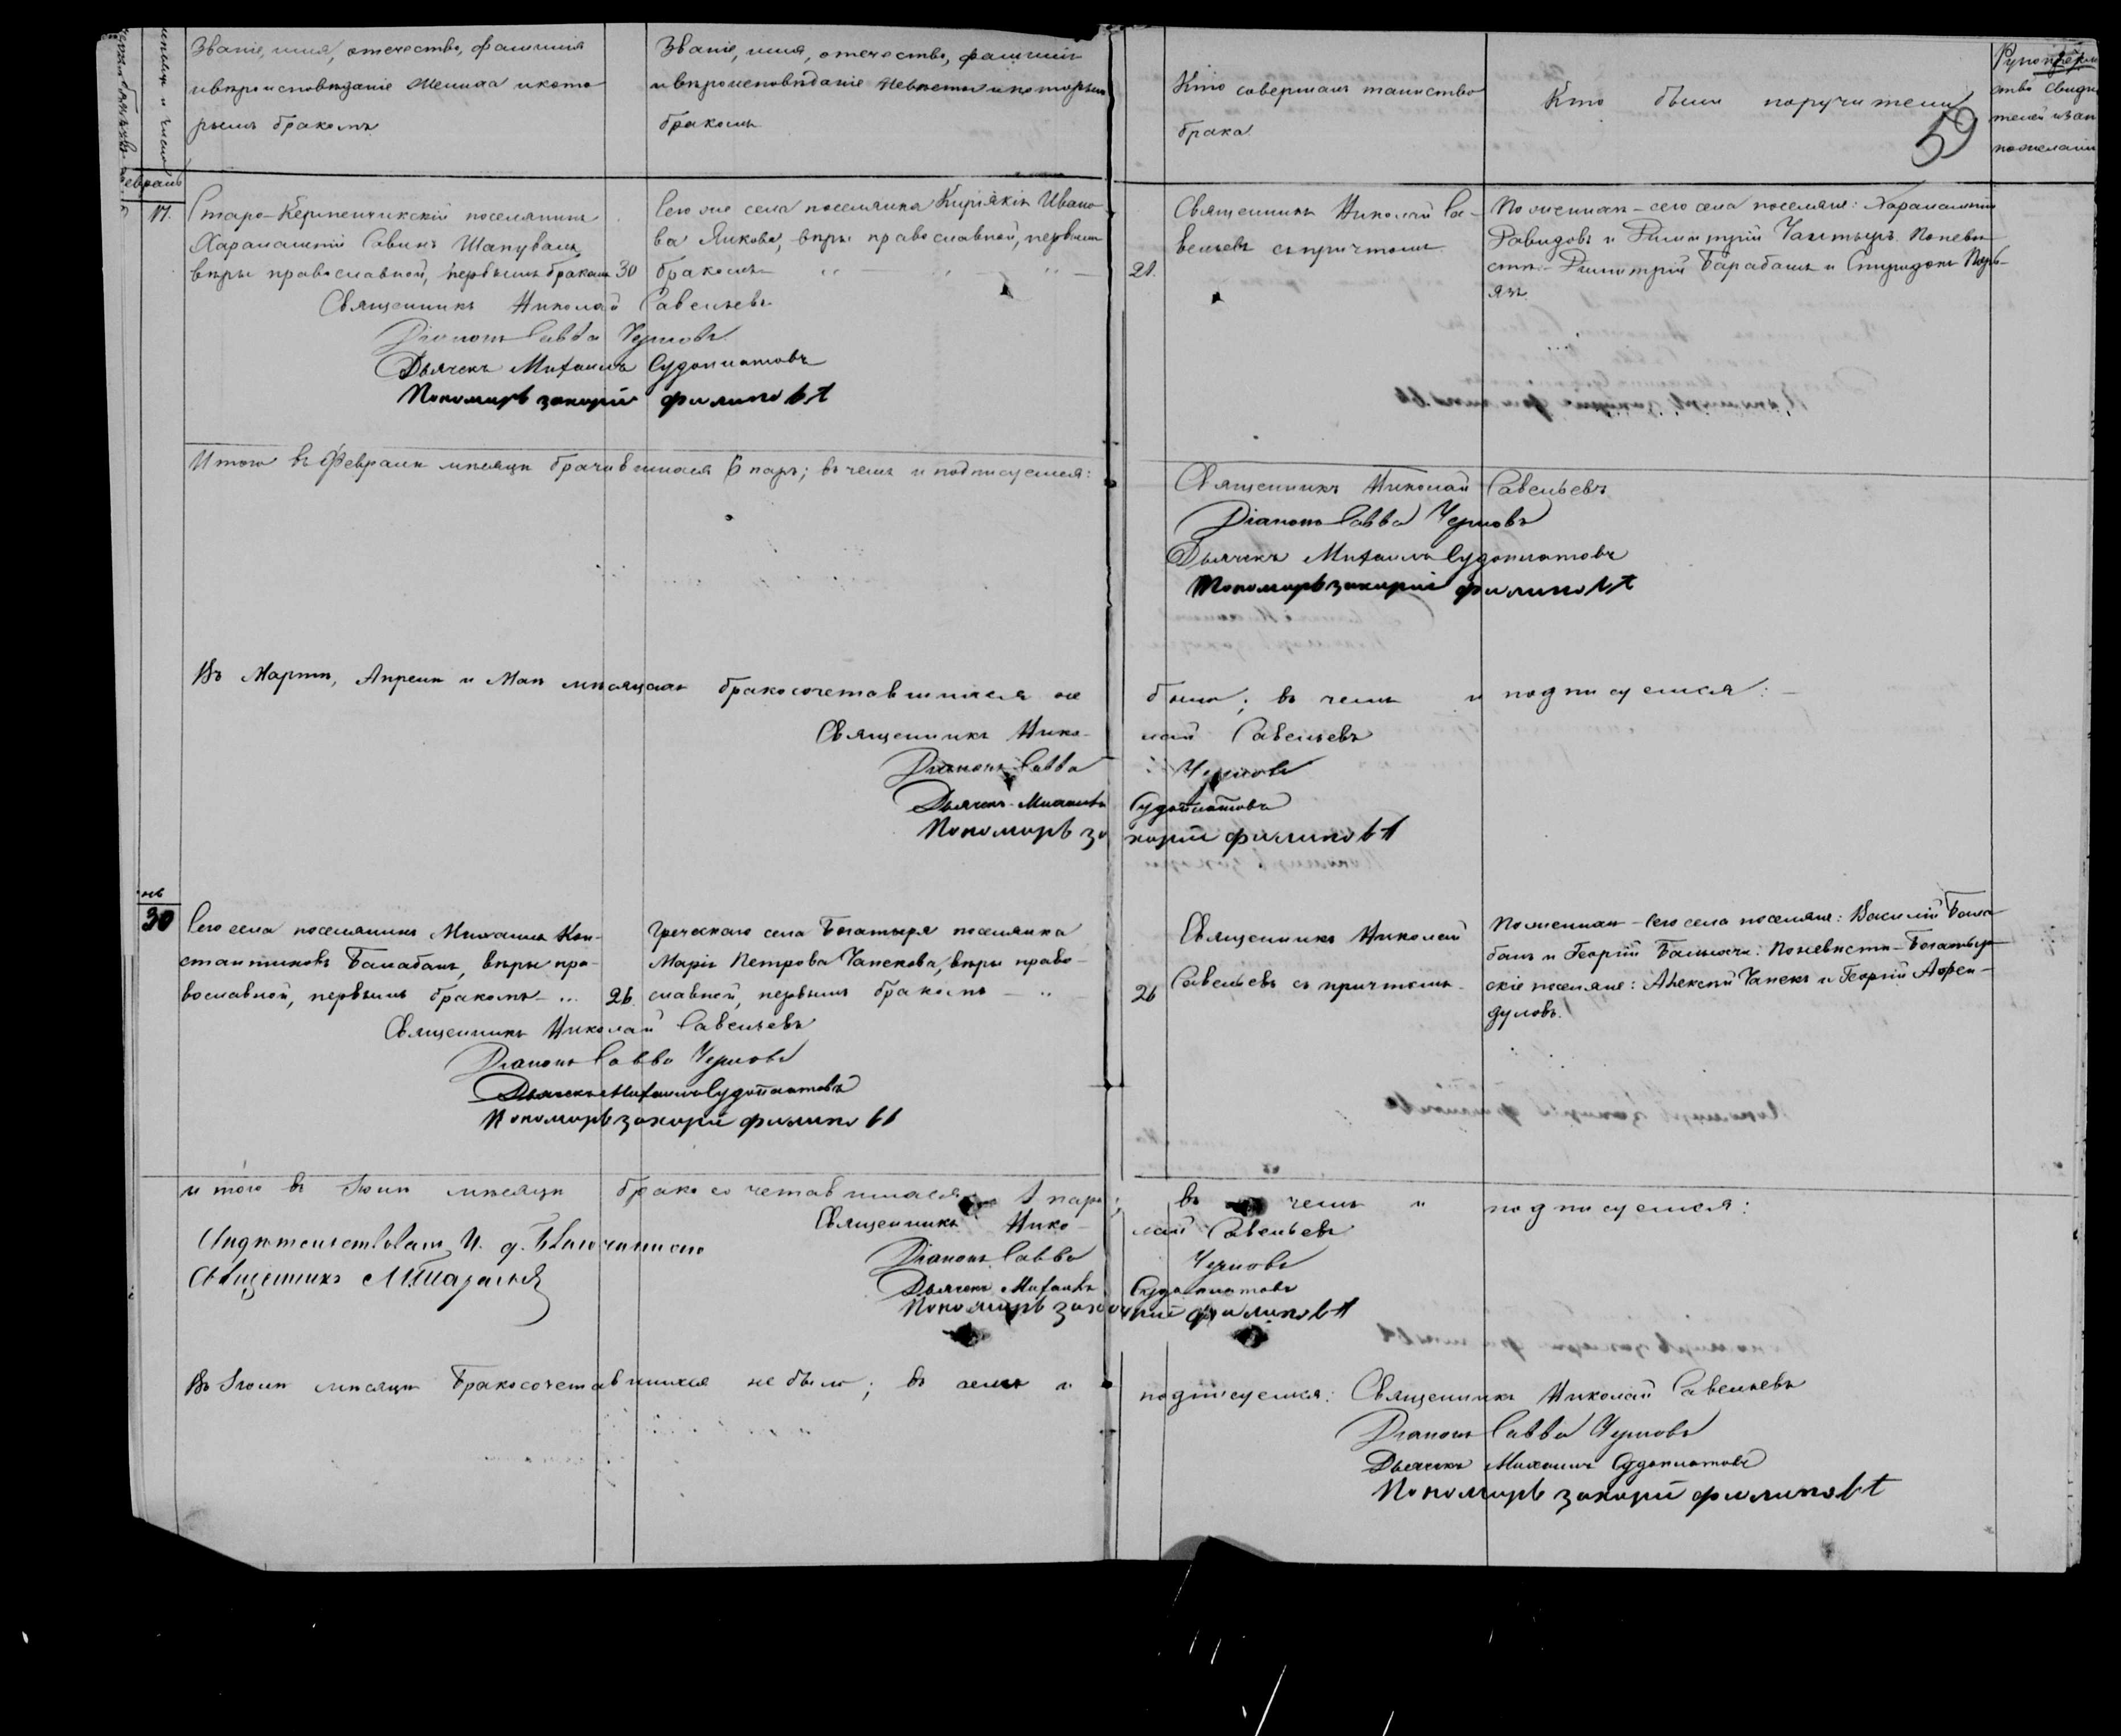 Званіе, имя, отечество, фамилія
и вѣроисповѣданіе жениха и кото
рымъ бракомъ
Званіе, имя, отечество, фамилія
и вѣроисповѣданіе невѣсты и которымъ
бракомъ
Кто совершалъ таинство
брака.
Кто были поручители
59
Рукоприклад
ство свидѣ
телей и зап
по желани
мѣсяцъ и число
евраль
17.
Старо-Керменчикскій поселянинъ
Харлампій Савинъ Шапувалъ,
вѣры православной, первымъ бракомъ
30
Сего же села поселянка Киріякія Ивано
ва Янкова, вѣры православной, первымъ
бракомъ
21.
Священникъ Николай Са-
вельевъ съ причтомъ
По женихѣ - сего села поселяне: Харлампій
Давидовъ и Димитрій Чалтыръ. По невѣ
стѣ - Димитрій Барабашъ и Спиридонъ
язъ.
Священникъ Николай Савельевъ
Діаконъ Савва Черновъ
Дьячекъ Михаилъ Судоплатовъ
Пономаръ захарій филиповъ
Итого въ Февралѣ мѣсяцѣ брачившихся 6 паръ; въ чемъ и подписуемся:
Священникъ Николай Савельевъ
Діаконъ Савва Черновъ
Дьячекъ Михаилъ Судоплатовъ
Пономаръ захарій филиповъ
Въ Мартѣ, Апрелѣ и Маѣ мѣсяцахъ бракосочетавшихся не было; въ чемъ и подписуемся: -
Священникъ Нико- лай Савельевъ
Діаконъ Савва Черновъ
Дьячекъ Михаилъ Судоплатовъ
Пономаръ за харій филиповъ
30
Сего села поселянинъ Михаилъ Кон-
стантиновъ Балабанъ, вѣры пра-
вославной, первымъ бракомъ - ...
26.
Греческаго села Богатыря поселянка
Марія Петрова Чапекова, вѣры право-
славной, первымъ бракомъ
26
Священникъ Николай
Савельевъ съ причтомъ
По женихѣ - сего села поселяне: Василій Бала
банъ и Георгій По невѣстѣ - Богатыр
скіе поселяне: Алексѣй Чапекъ и Георгій Афен-
дуловъ.
Священникъ Николай Савельевъ
Діаконъ Савва Черновъ
Дьячекъ Михаилъ Судоплатовъ
Пономаръ захарій филиповъ
и того въ Іюнѣ мѣсяцѣ бракосочетавшихся 1 пара; въ чемъ и подписуемся:
Священникъ Нико- лай Савельевъ
Діаконъ Савва Черновъ
Дьячекъ Михаилъ Судоплатовъ
Пономаръ захарій филиповъ
Свидѣтельствовалъ И. д. Благочиннаго
Священникъ
Въ Іюлѣ мѣсяцѣ бракосочетавшихся не было; въ чемъ и подписуемся: Священникъ Николай Савельевъ
Діаконъ Савва Черновъ
Дьячекъ Михаилъ Судоплатовъ
Пономаръ захарій филиповъ